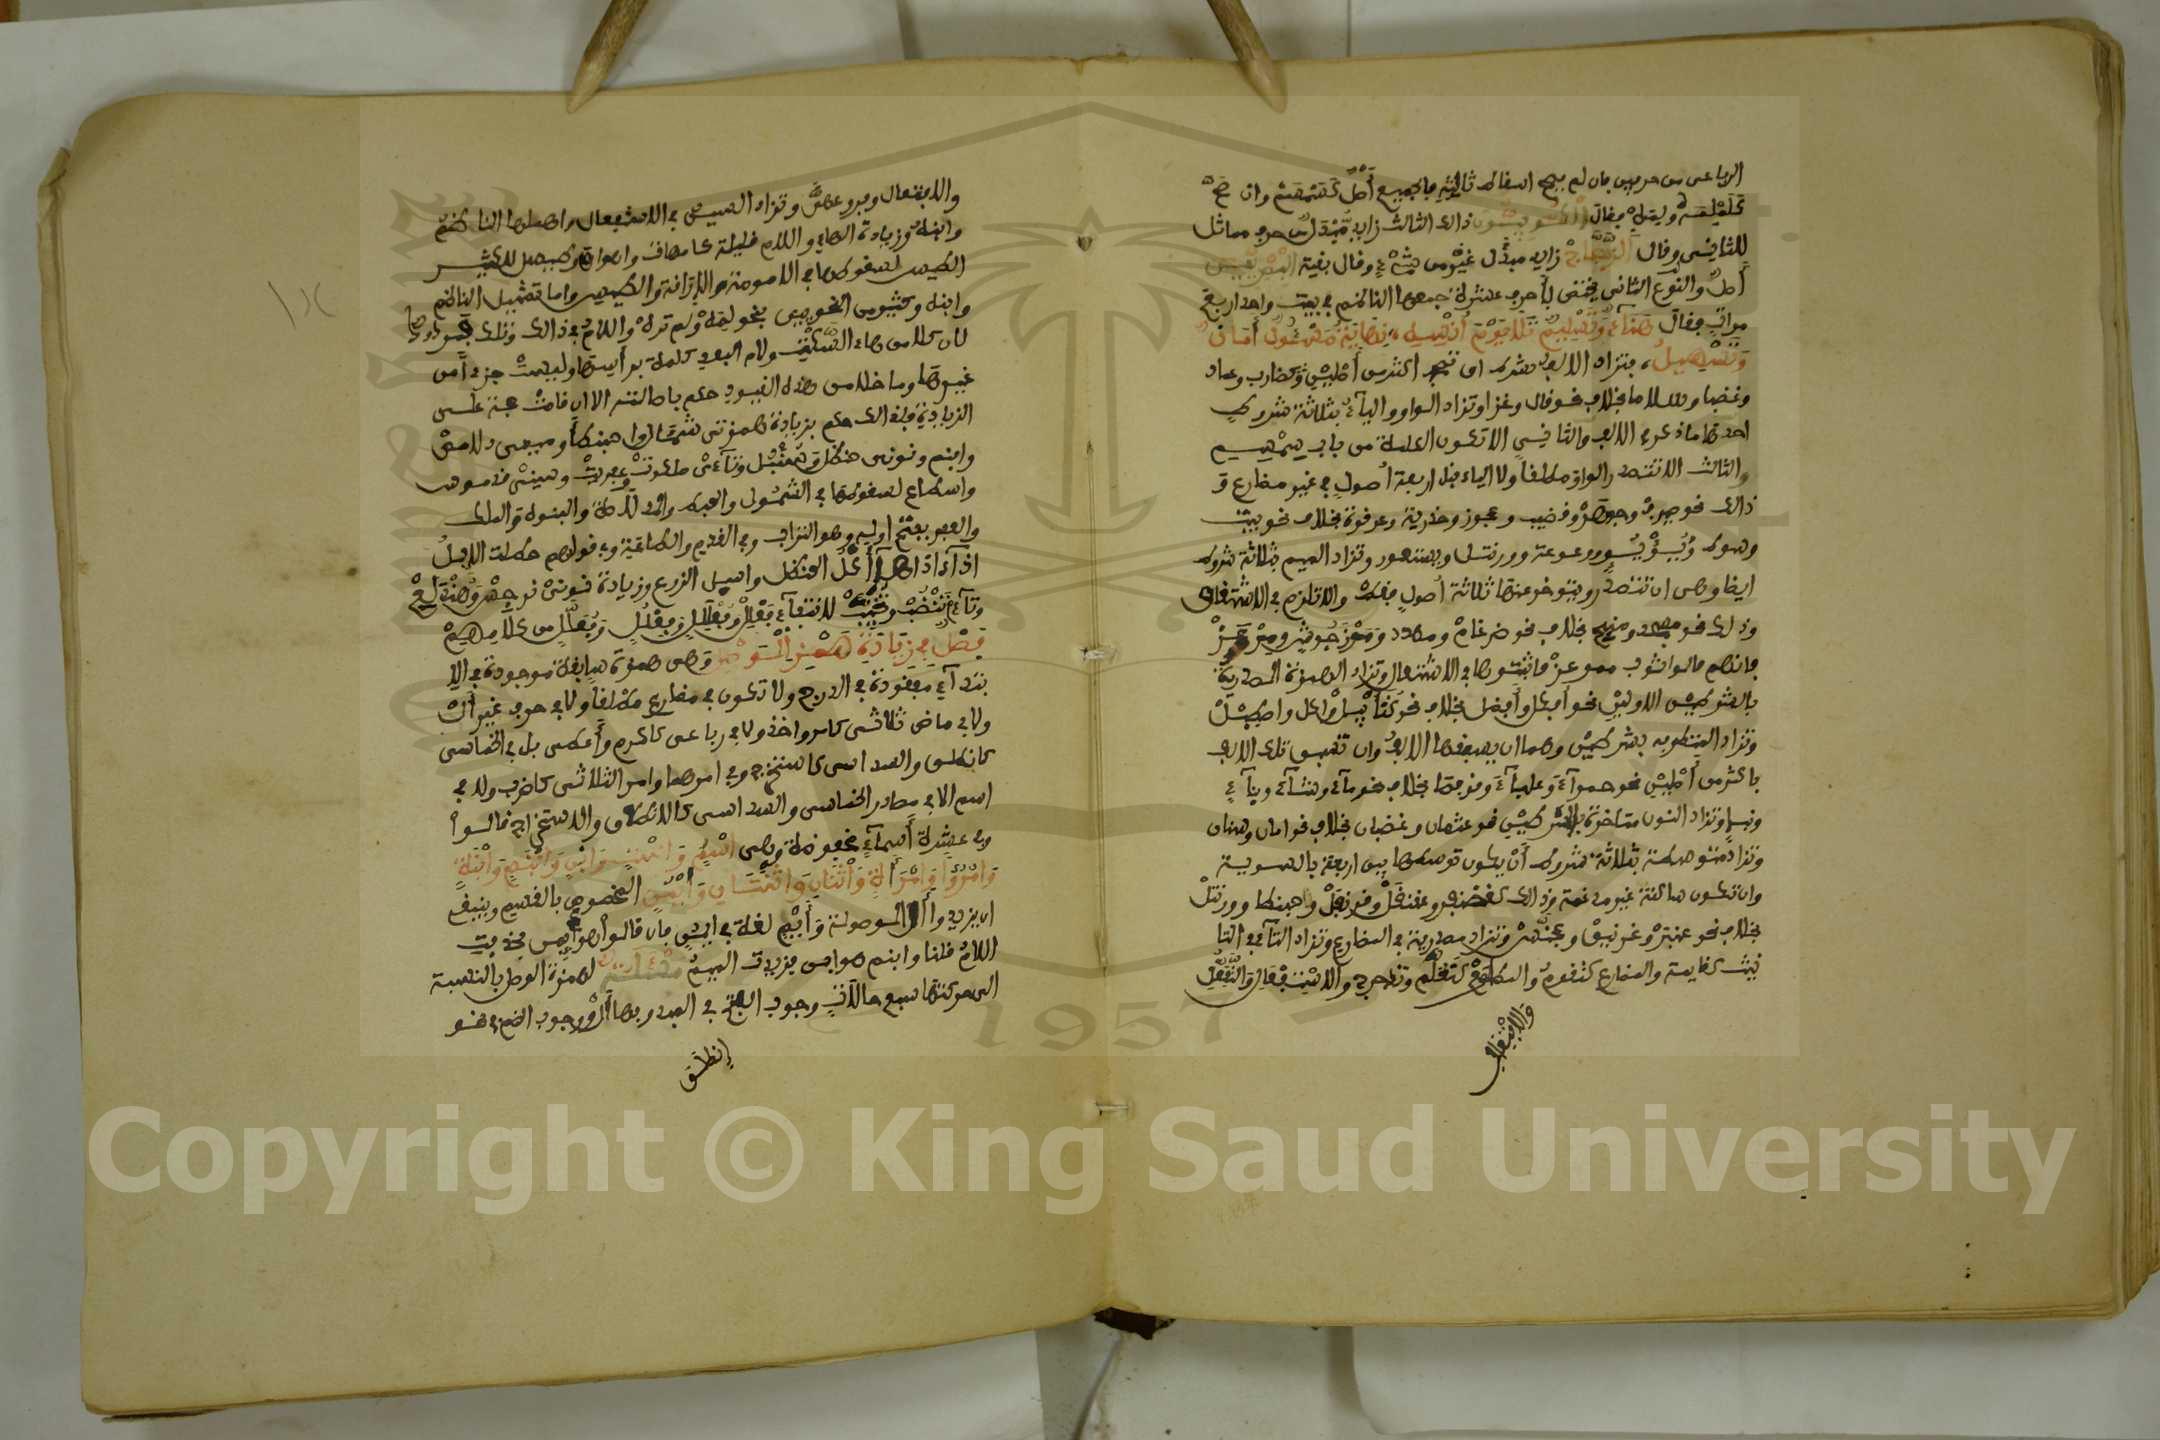 الرباعي من حرفين فان لم يصح اسقاط ثالثه فالجميع أصل كسمسم وان صح
كلملمه وليله فقال الكوفيون ذالك الثالث زايد مبدل من حرف مماثل
للثاني وقال الزجاج زايد مبدل غير من شيء وقال بقية البصريين
أصل والنوع الثاني يختص بأحرف عشرة جمعها الناظم في بيت واحد اربع
مرات فقال هناء وتسليم تلا يوم أنسه نهاية مسئول أمان
وتسهيل فتزاد الالف بشرط ان تصحب اكثر من أصلين كضارب وعماد
وغضبا وسلاما بخلاف نحو قال وغزا وتزاد الواو والياء بثلاثة شروط
احدها ما ذكر في الالف والثاني الا تكون الكلمة من باب سمسم
والثالث الا تتصدر الواو مطلقا ولا الياء قبل اربعة أصول في غير مضارع و
ذالك نحو صيرف وجوهر وقضيب وعجوز وحذرية وعرقوة بخلاف نحو بيت
وسوط ويؤيؤ ووعوعة وورنتل ويستعور وتزاد الميم بثلاثة شروط
ايضا وهي ان تتصدر ويتأخر عنها ثلاثة أصول فقط والا تلزم في الاشتقاق
وذلك نحو مسجد ومنبج بخلاف نحو ضرغام ومهدد ومرزجوش ومرعز
فانهم قالوا ثوب ممرعز فاثبتوها في الاشتقاق وتزاد الهمزة المصدرة
بالشرطين الاولين نحو أفكل وأفضل بخلاف نحو كنأبيل واكل واصطبل
وتزاد المتطرفة بشرطين وهما ان يسبقها الالف وان تسبق تلك الالف
باكثر من أصلين نحو حمراء وعلباء وقرفصا بخلاف نحو ماء وشاء وبناء
ونبإ وتزاد النون متأخرة بالشرطين نحو عثمان وغضبان بخلاف نحو امان وسنان
وتزاد متوسطة بثلاثة شروط أن يكون توسطها بين اربعة بالسوية
وان تكون ساكنة غير مدغمة وذالك كغضنفر وعقنقل وقرنفل وحبنطا وورنتل
بخلاف نحو عنبر وغرنيق وعجنس وتزاد مصدرة في المضارع وتزاد التاء في التا
نيث كقايمة والمضارع كتقوم والمطاوع كتعلم وتدحرج والاستفعال والتفعل
والافتعال
والافتعال وفروعهن وتزاد السين في الاستفعال واهملها الناظم
وابنه وزيادة الهاء واللام قليلة كأمهات واهراق وطيسل للكثير
الطيس لسقوطها في الامومة والاراقة والطيس واما تمثيل الناظم
وابنه وكثير من النحويين بنحو لمه ولم تره واللام في ذالك وتلك فمردود
لان كلا من هاء السكت ولام البعد كلمة برأسها وليست جزءا من
غيرها وما خلا من هذه القيود حكم باصالته الا ان قامت حجة على
الزيادة فلذالك حكم بزيادة همزتي شمأل واحبنطأ وميمي دلامص
وابنم ونوني حنظل وسنبل وتاءي ملكوت وعفريت وسيني قدموس
واسطاع لسقوطها في الشمول والحبط والدلاصة والبنوة والملك
والعفر بفتح اوله وهو التراب وفي القدم والطاعة وفي قولهم حظلت الابل
اذا آذاها أكل الحنظل واسبل الزرع وزيادة نوني نرجس وهندلع
وتاءي تنضب وتخيب لانتفاء فعلل وفعلل وفعلل وفعلل من كلامهم
فصل في زيادة همزة الوصل وهي همزة سابقة موجودة في الا
بتداء مفقودة في الدرج ولا تكون في مضارع مطلقا ولا في حرف غير أل
ولا في ماض ثلاثي كامر واخذ ولا في رباعي كاكرم وأعطى بل في الخماسي
كانطلق والسداسي كاستخرج وفي امرهما وامر الثلاثي كاضرب ولا في
اسم الا في مصادر الخماسي والسداسي كالانطلاق والاستخراج قالوا
وفي عشرة أسماء محفوظة وهي اسم واست وابن وابنم وابنة
وامرؤ وامرأة واثنان واثنتان وايمن المخصوص بالقسم وينبغي
ان يزيدوا أل الموصولة وأيم لغة في ايمن فان قالوا هي أيمن فحذفت
اللام قلنا وابنم هو ابن فزيدت الميم مسألة لهمزة الوصل بالنسبة
الى حركتها سبع حالات وجوب الفتح في المبدو بها أل ووجوب الضم في نحو
انطلق